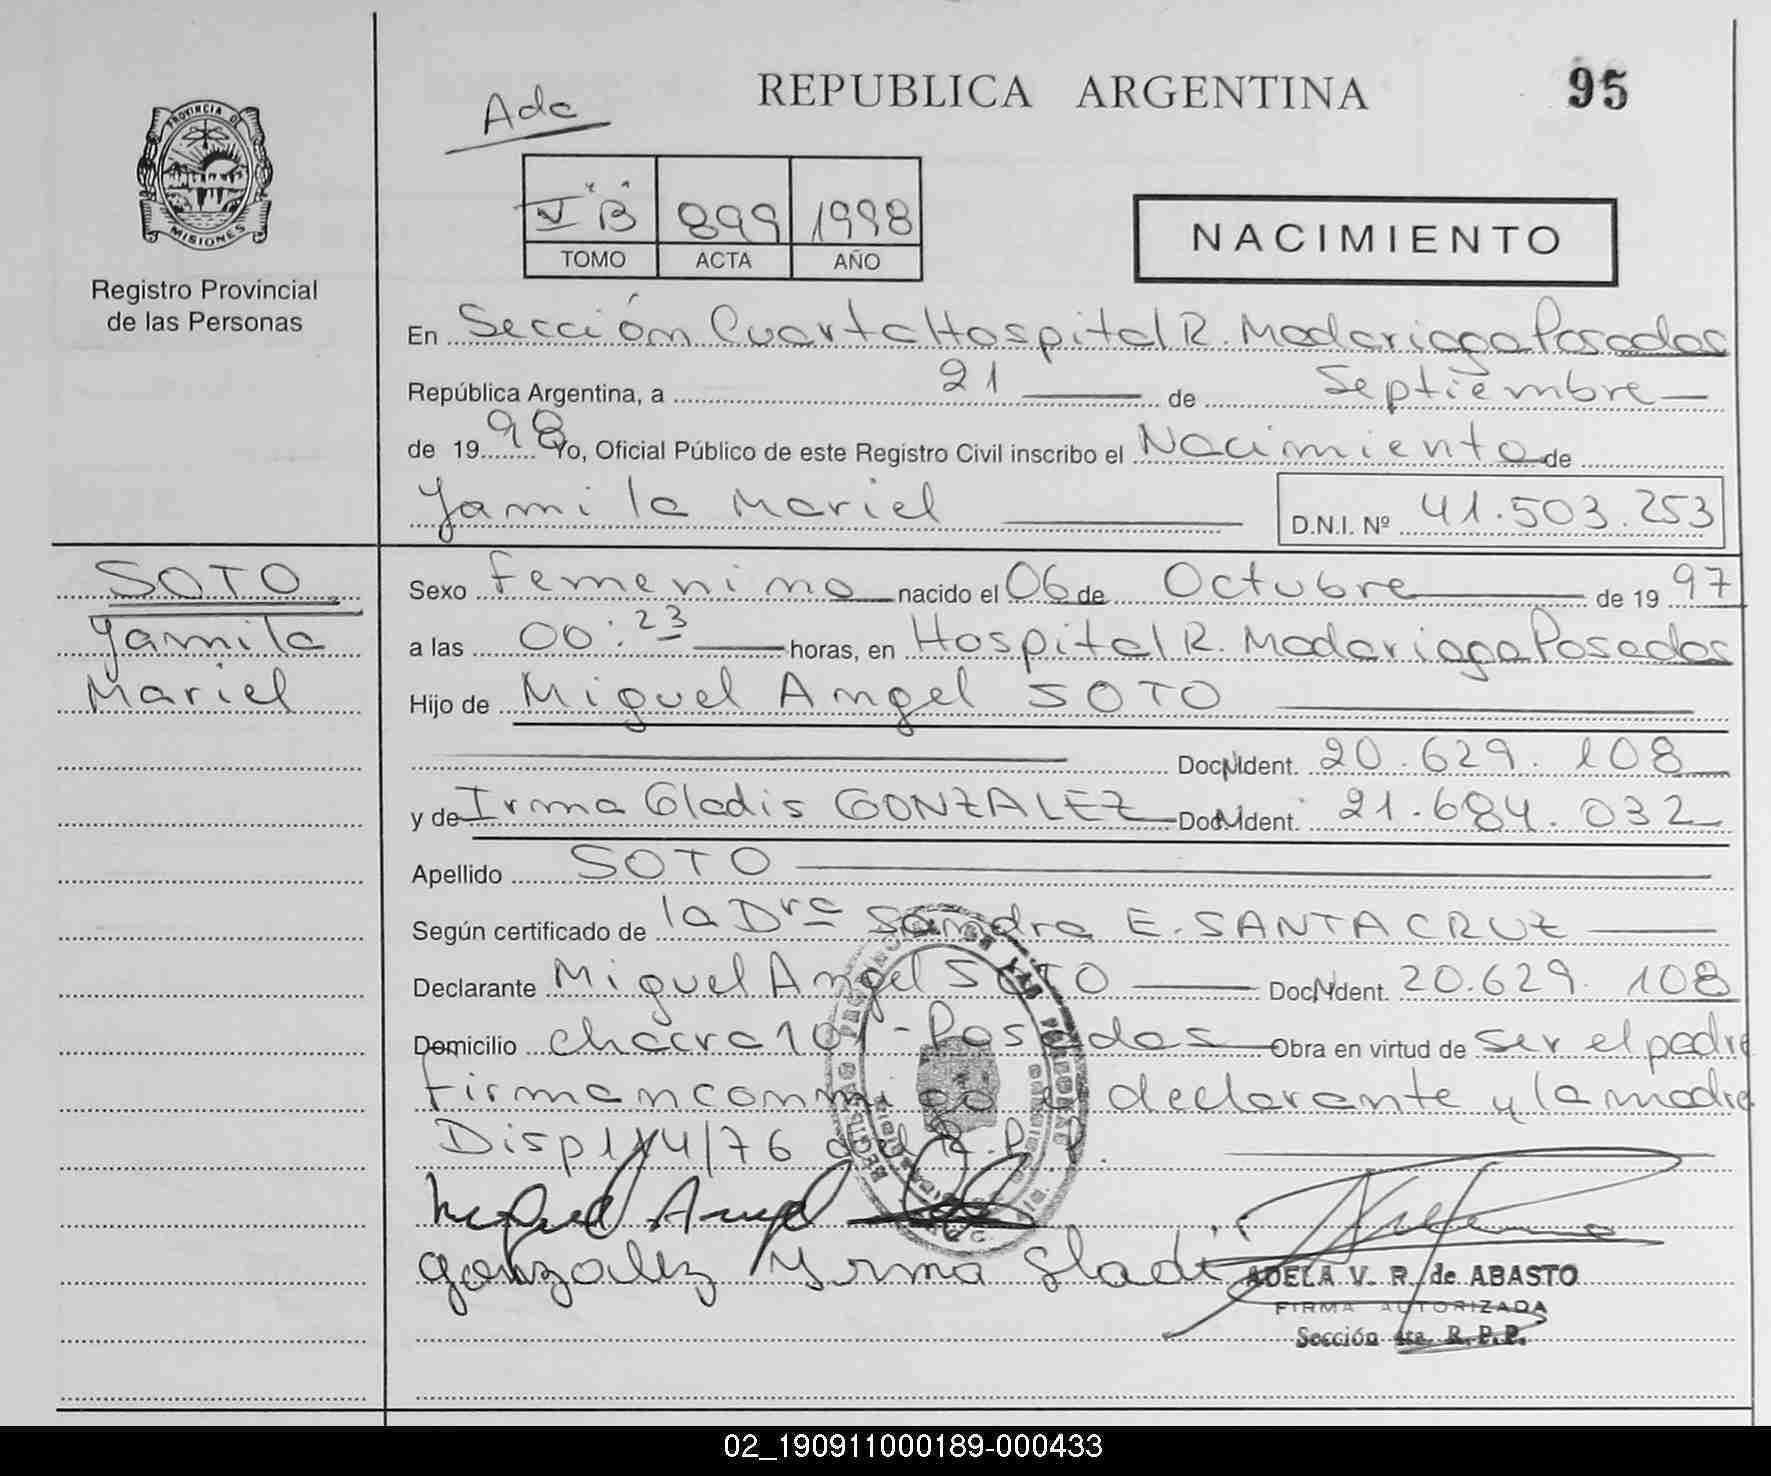 REPUBLICA ARGENTINA
95
PROVINCIA DE
MISIONES
Registro Provincial
de las Personas
V "B" 899 1998
TOMO ACTA AÑO
NACIMIENTO
En Sección Cuarta Hospital R. Madariaga Posadas
República Argentina, a 21 de Septiembre
de 1998 Yo, Oficial Público de este Registro Civil inscribo el Nacimiento de
Yamila Mariel
D.N.I. Nº 41.503.253
SOTO
Yamila
Mariel
Sexo Femenino nacido el 06 de Octubre de 1997
a las 00:23 horas, en Hospital R. Madariaga Posadas
Hijo de Miguel Angel SOTO
Doc. Ident. 20.629.108
y de Irma Gladis GONZALEZ Doc. Ident. 21.684.032
Apellido SOTO
Según certificado de la Dra Sandra E. SANTA CRUZ
Declarante Miguel Angel SOTO Doc. Ident. 20.629.108
Domicilio chacra 10 - Posadas Obra en virtud de ser el padre
Firman conmigo el declarante y la madre
Disp 114/76 del R.P.P.
Miguel Angel
Gonzalez Yrma Gladi
ADELA V. R. de ABASTO
FIRMA AUTORIZADA
Sección 4ta. R.P.P.
02_190911000189-000433